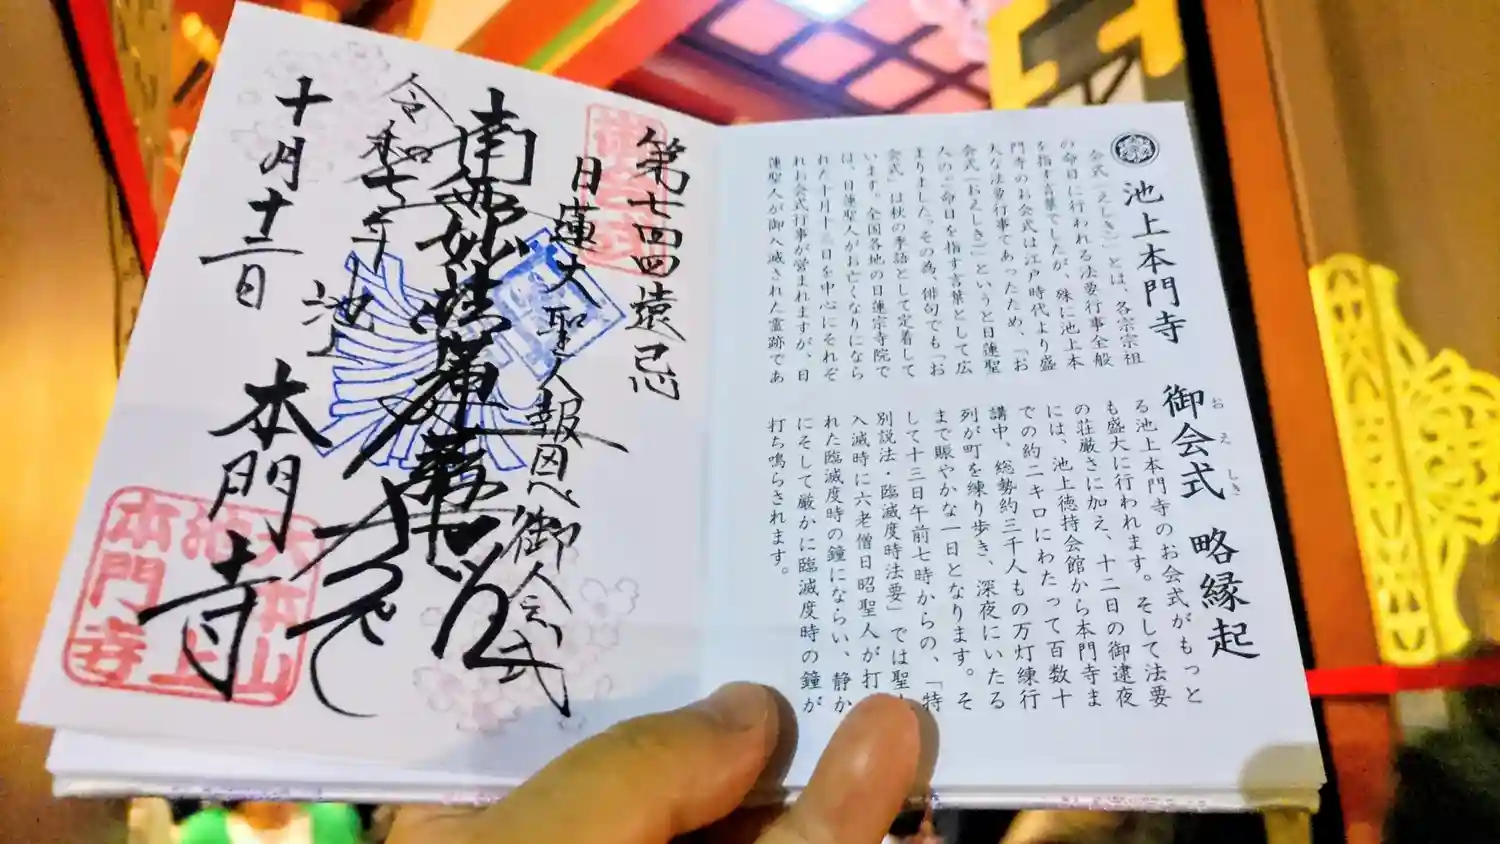 池上本門寺 御会式 略縁起
おえしき
会式（えしき）」とは、各宗宗祖
の命日に行われる法要行事全般
を指す言葉でしたが、殊に池上本
門寺のお会式は江戸時代より盛
大な法要行事であったため、「お
会式（おえしき）」というと日蓮聖
人のご命日を指す言葉として広
まりました。その為、俳句でも「お
会式」は秋の季語として定着して
います。全国各地の日蓮宗寺院で
は、日蓮聖人がお亡くなりになら
れた十月十三日を中心にそれぞ
れお会式行事が営まれますが、日
蓮聖人が御入滅された霊跡であ
る池上本門寺のお会式がもっと
も盛大に行われます。そして法要
の荘厳さに加え、十二日の御逮夜
には、池上徳持会館から本門寺ま
での約二キロにわたって百数十
講中、総勢約三千人もの万灯練行
列が町を練り歩き、深夜にいたる
まで賑やかな一日となります。そ
して十三日午前七時からの、「特
別説法・臨滅度時法要」では聖人
入滅時に六老僧日昭聖人が打
れた臨滅度時の鐘にならい、静か
にそして厳かに臨滅度時の鐘が
打ち鳴らされます。
第七四四遠忌
日蓮大聖人報恩御会式
南無妙法蓮華経
令和七年 池上
十月十二日
本門寺
御会式
大本山
池上
本門寺